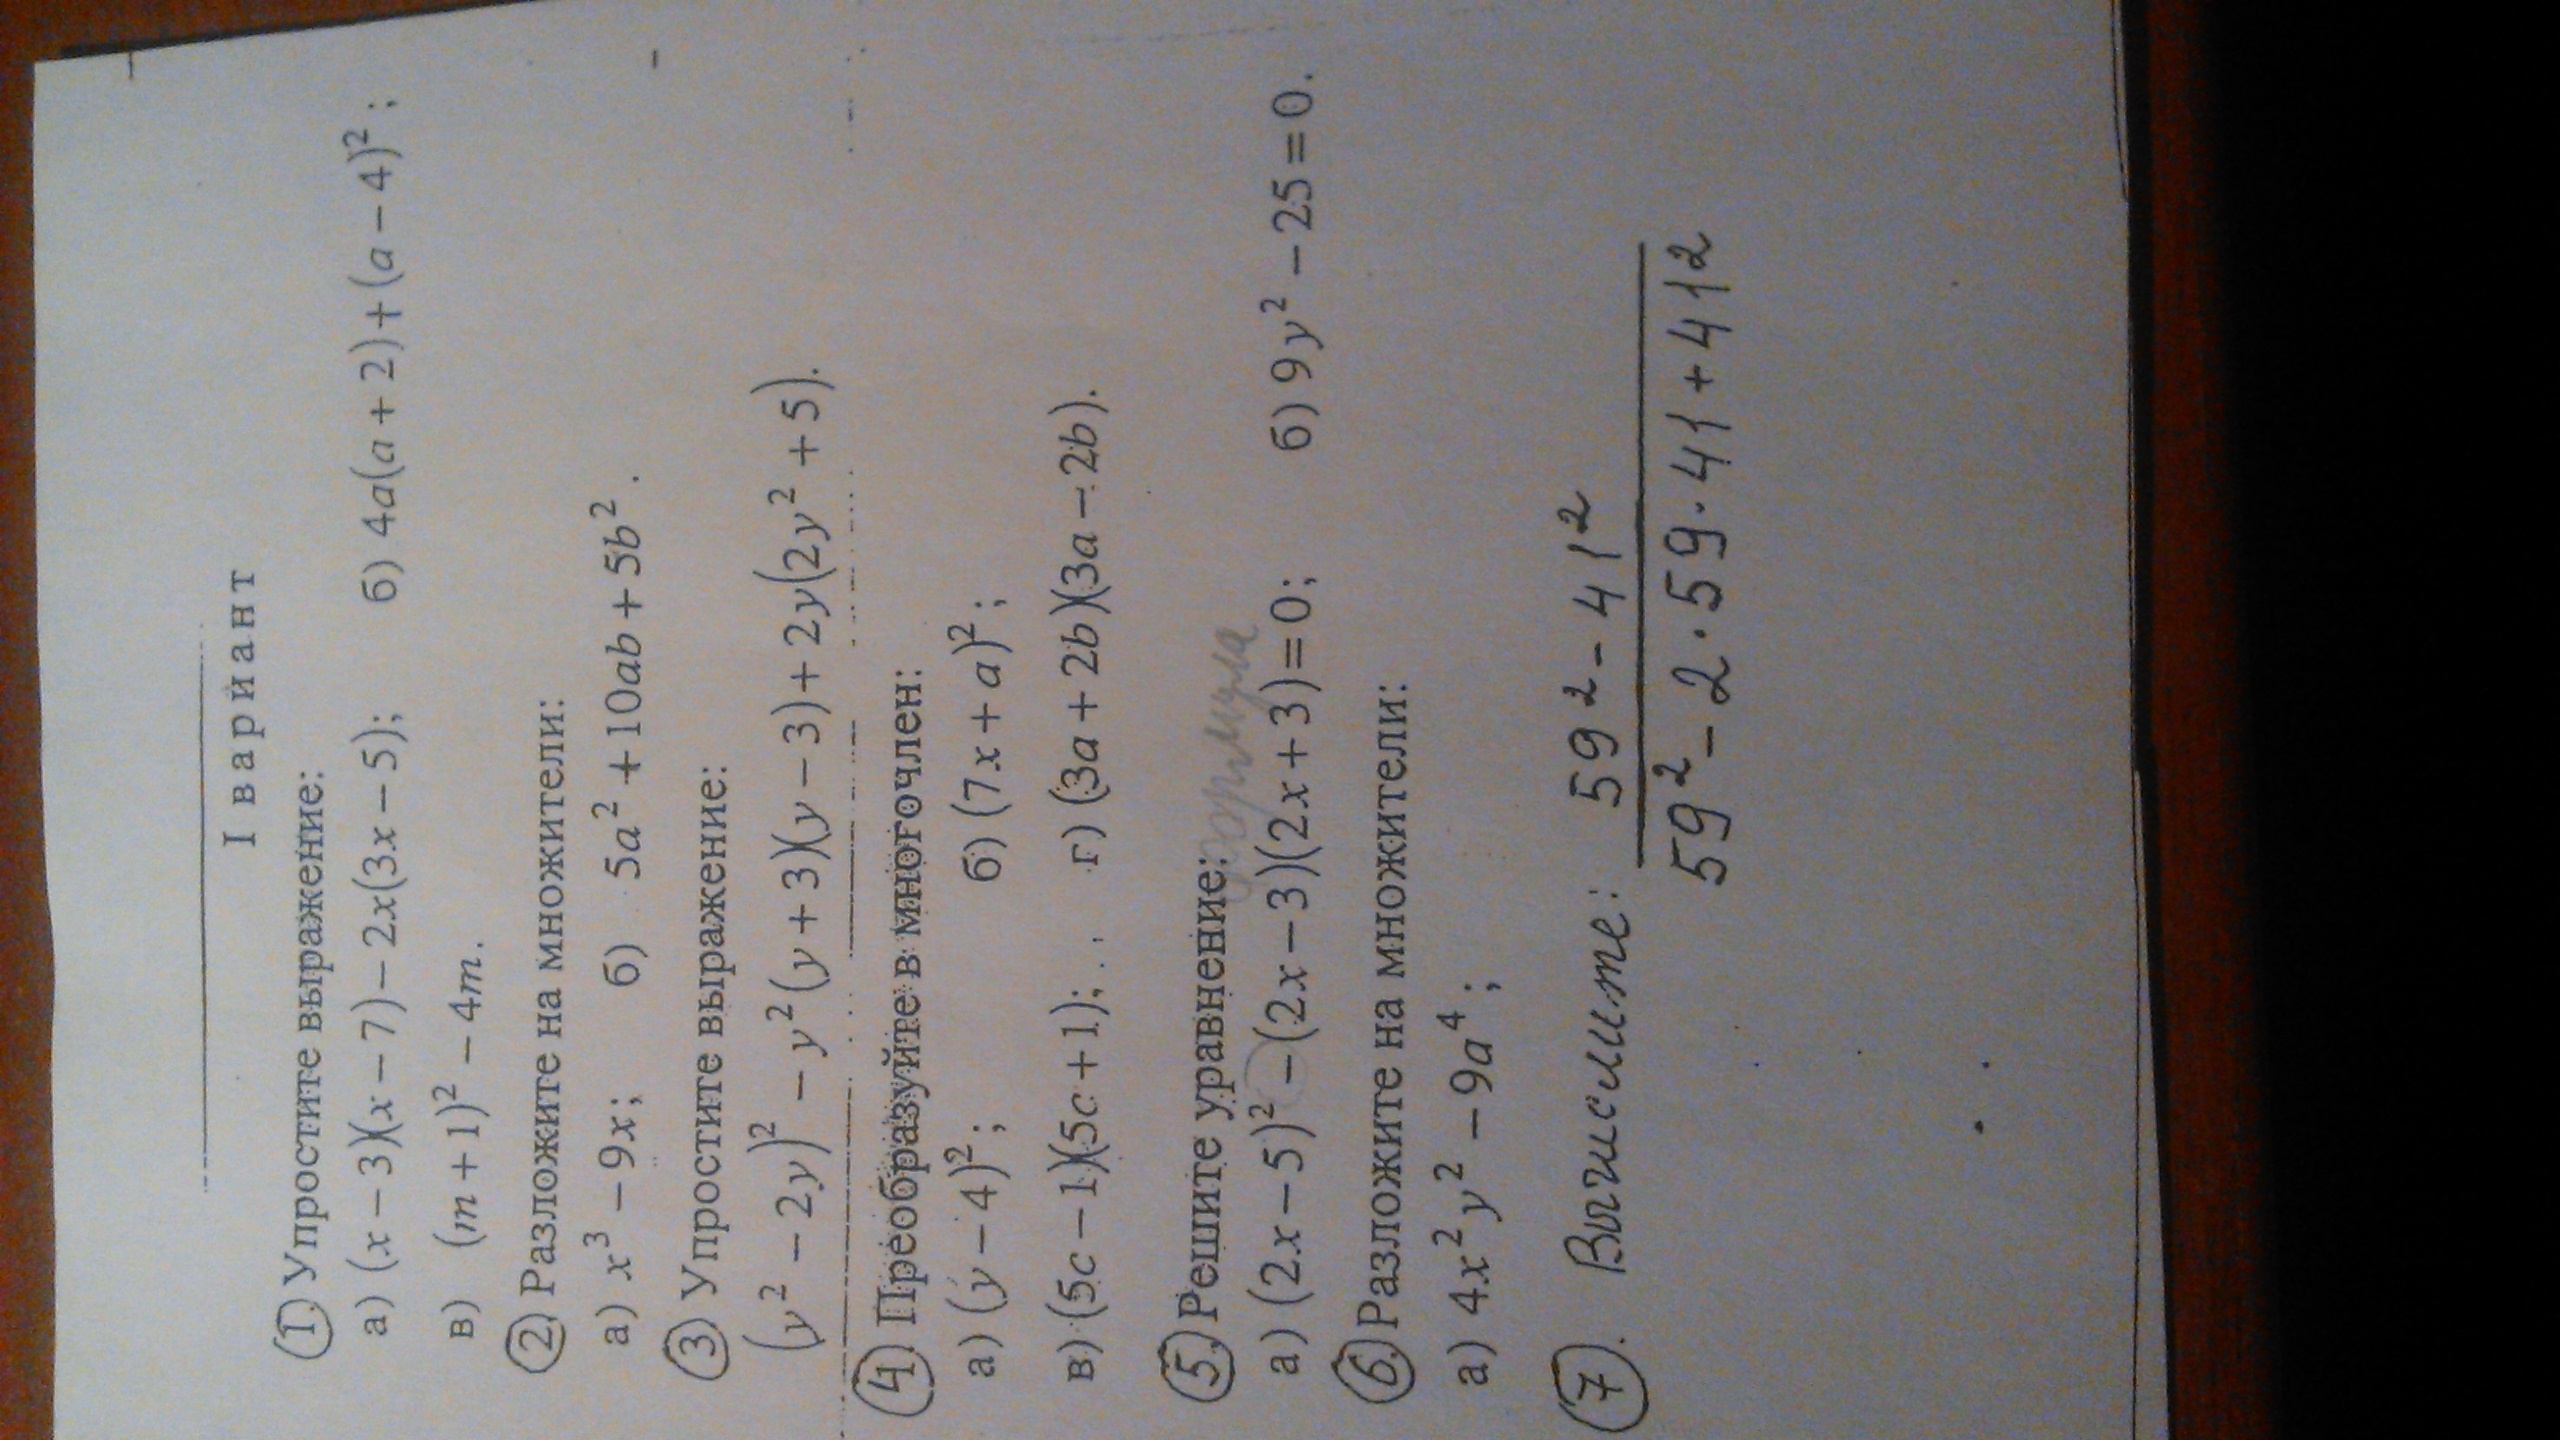 I вариант
1. Упростите выражение:
а) (x − 3)(x − 7) − 2x(3x − 5); б) 4a(a + 2) + (a − 4)²;
в) (m + 1)² − 4m.
2. Разложите на множители:
а) x³ − 9x; б) 5a² + 10ab + 5b².
3. Упростите выражение:
(y² − 2y)² − y²(y + 3)(y − 3) + 2y(2y² + 5).
4. Преобразуйте в многочлен:
а) (y − 4)²; б) (7x + a)²;
в) (5c − 1)(5c + 1); г) (3a + 2b)(3a − 2b).
5. Решите уравнение: формула
а) (2x − 5)² − (2x − 3)(2x + 3) = 0; б) 9y² − 25 = 0.
6. Разложите на множители:
а) 4x²y² − 9a⁴;
7. Вычислите: 59² − 41²
59² − 2 · 59 · 41 + 41²